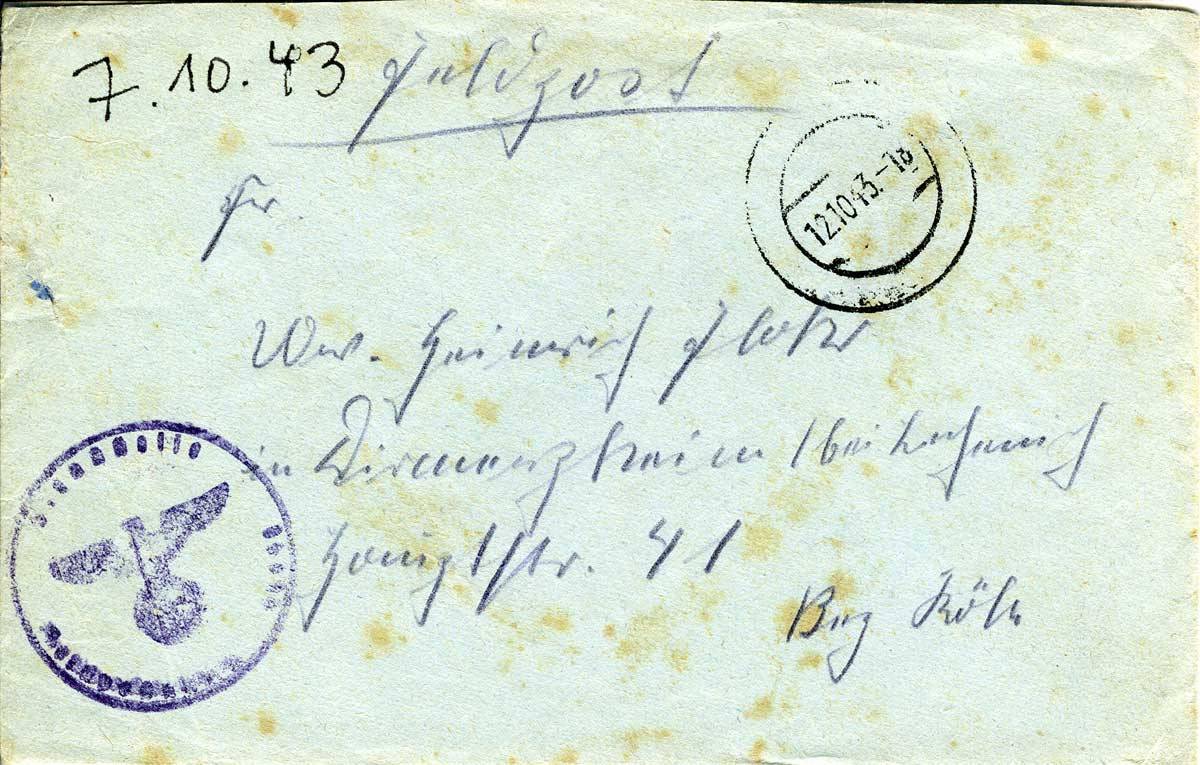 7.10.43 Feldpost
12.10.43.-18
Fr.
Ww. Heinrich Flohr
in Dirmerzheim / bei Lechenich
Hauptstr. 41
Bez Köln